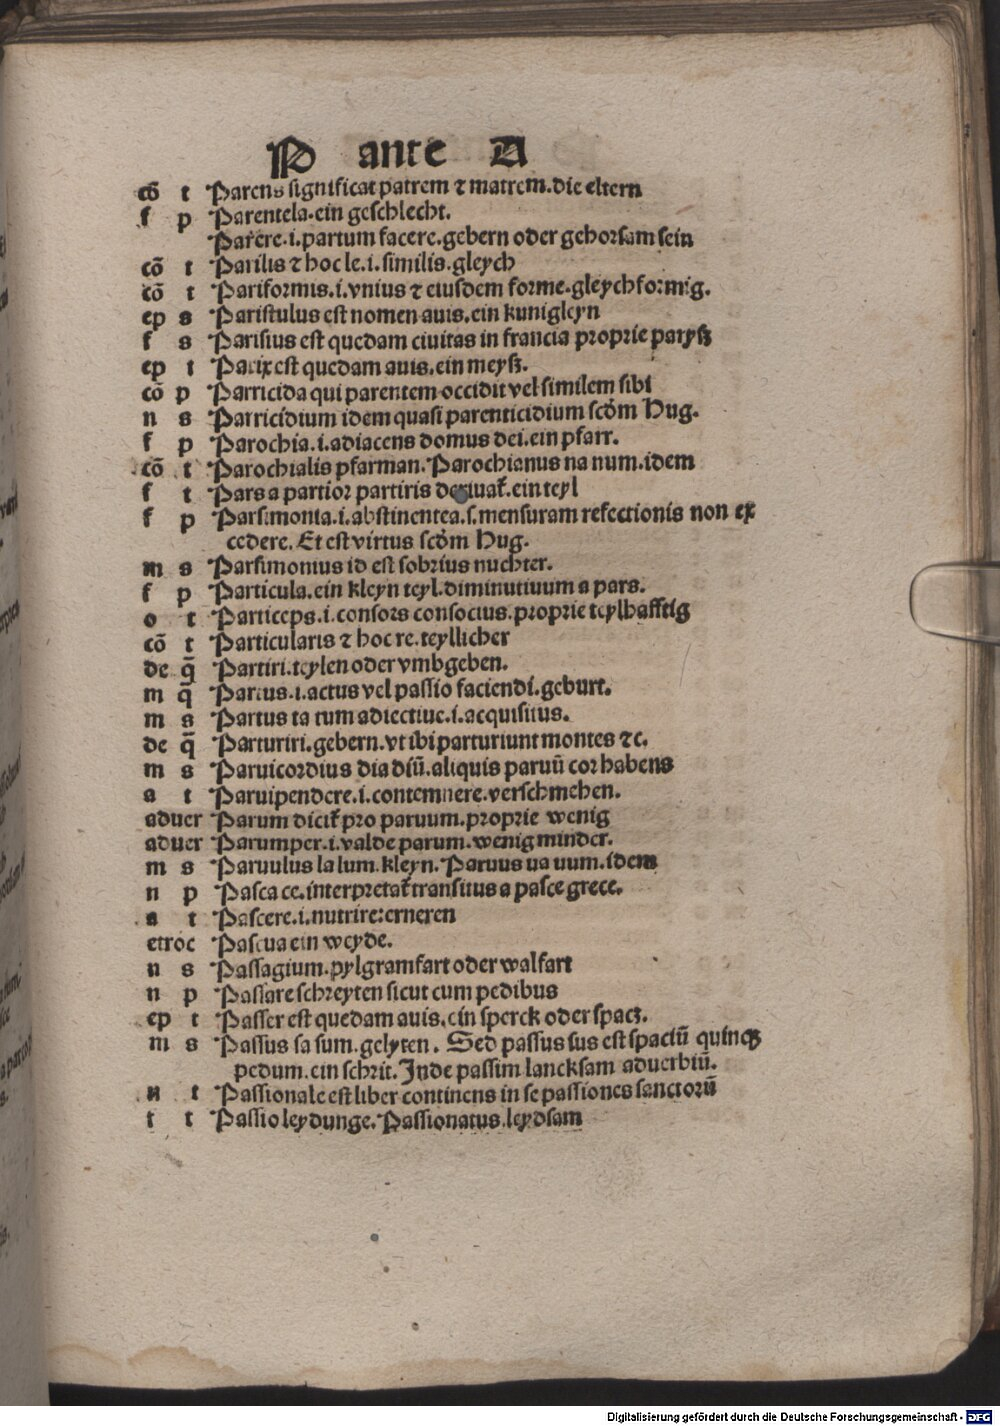 P ante A
cō t Parens significat patrem ⁊ matrem.die eltern
f p Parentela.ein geschlecht.
Parere.i.partum facere.gebern oder gehorsam sein
cō t Parilis ⁊ hoc le.i.similis.gleych
cō t Pariformis.i.vnius ⁊ eiusdem forme.gleychformig.
ep s Paristulus est nomen auis.ein kunigleyn
f s Parisius est quedam ciuitas in francia proprie paryß
ep t Parix est quedam auis.ein meyß.
cō p Parricida qui parentem occidit vel similem sibi
n s Parricidium idem quasi parenticidium scōm Hug.
f p Parochia.i.adiacens domus dei.ein pfarr.
cō t Parochialis pfarman.Parochianus na num.idem
f t Pars a partior partiris deriuaꝉ.ein teyl
f p Parsimonia.i.abstinentea.s.mensuram refectionis non ex
cedere. Et est virtus scōm Hug.
m s Parsimonius id est sobrius nuchter.
f p Particula.ein kleyn teyl.diminutiuum a pars.
o t Particeps.i.consors consocius.proprie teylhafftig
cō t Particularis ⁊ hoc re.teyllicher
de q̄ Partiri.teylen oder vmbgeben.
m q̄ Partus.i.actus vel passio faciendi.geburt.
m s Partus ta tum adiectiue.i.acquisitus.
de q̄ Parturiri.gebern.vt ibi parturiunt montes ⁊c.
m s Paruicordius dia diū.aliquis paruū cor habens
a t Paruipendere.i.contemnere.verschmehen.
aduer Parum diciꝉ pro paruum.proprie wenig
aduer Parumper.i.valde parum.wenig minder.
m s Paruulus la lum.kleyn.Paruus ua uum.idem
n p Pasca ce.interpretaꝉ transitus a pasce grece.
a t Pascere.i.nutrire:erneren
etroc Pascua ein weyde.
n s Passagium.pylgramfart oder walfart
n p Passare schreyten sicut cum pedibus
ep t Passer est quedam auis.ein sperck oder spacz.
m s Passus sa sum.gelyten. Sed passus sus est spaciū quinqꝫ
pedum.ein schrit.Inde passim lancksam aduerbiū.
n t Passionale est liber continens in se passiones sanctorū
t t Passio leydunge.Passionatus.leydsam
Digitalisierung gefördert durch die Deutsche Forschungsgemeinschaft - DFG